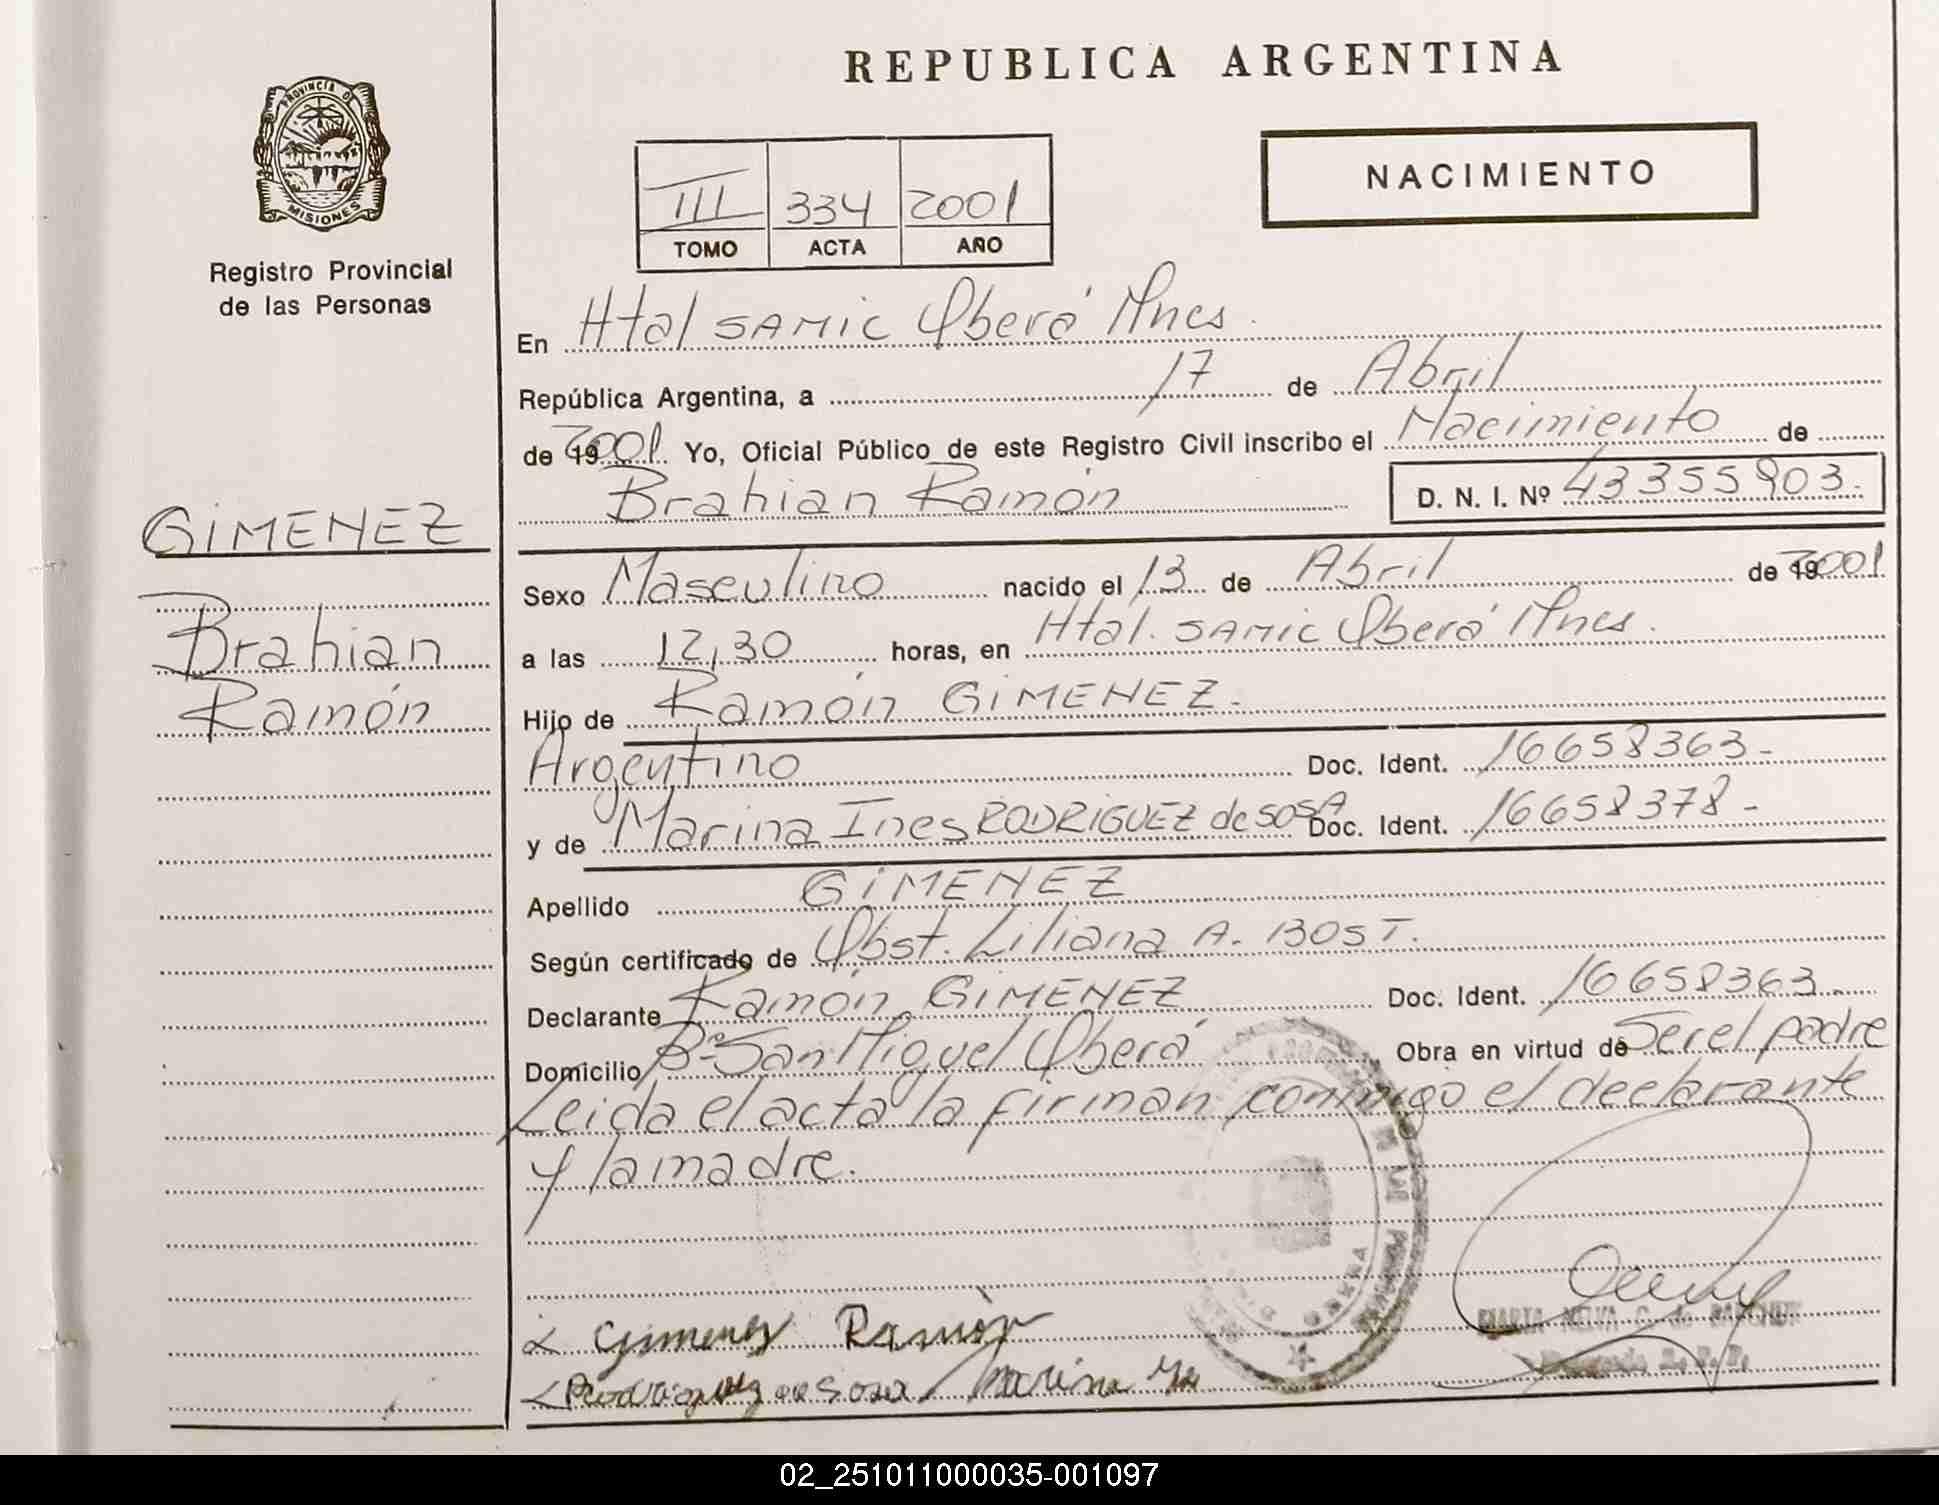 REPUBLICA ARGENTINA
PROVINCIA DE
MISIONES
Registro Provincial
de las Personas
NACIMIENTO
III 334 2001
TOMO ACTA AÑO
En Htal SAMIC Oberá Mnes.
República Argentina, a 17 de Abril
de 192001 Yo, Oficial Público de este Registro Civil inscribo el Nacimiento de
Brahian Ramón D. N. I. Nº 43355903.
GIMENEZ
Brahian
Ramón
Sexo Masculino nacido el 13 de Abril de 192001
a las 12,30 horas, en Htal. SAMIC Oberá Mnes.
Hijo de Ramón GIMENEZ.
Argentino Doc. Ident. 16658363-
y de Marina Ines RODRIGUEZ de SOSA Doc. Ident. 16658378-
Apellido GIMENEZ
Según certificado de Obst. Liliana A. BOST.
Declarante Ramón GIMENEZ Doc. Ident. 16658363-
Domicilio Bº San Miguel Oberá Obra en virtud de Ser el padre
Leida el acta la firman conmigo el declarante
y la madre.
Gimenez Ramón
Rodriguez de Sosa Marina
MARTA NELVA C. de
02_251011000035-001097